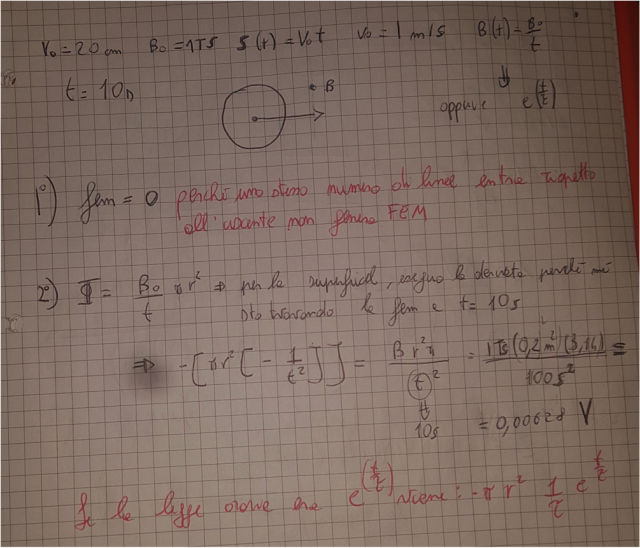 r₀ = 20 cm B₀ = 1 TS S(t) = V₀ t V₀ = 1 m/s B(t) = B₀/t
t = 10 s
B
oppure e^(t/τ)
1°) fem = 0 perché uno stesso numero di linee entra rispetto
all'uscente non genera FEM
2°) Φ = B₀/t π r² ⇒ per la superficie, eseguo la derivata perché mi
sto trovando la fem a t = 10s
⇒ -[πr²[-1/t²]] = B r² π / t² = 1 Ts (0,2 m²)(3,14) / 100 s² =
10s = 0,00628 V
Se la legge oraria era e^(t/τ) viene: -π r² 1/τ e^(t/τ)